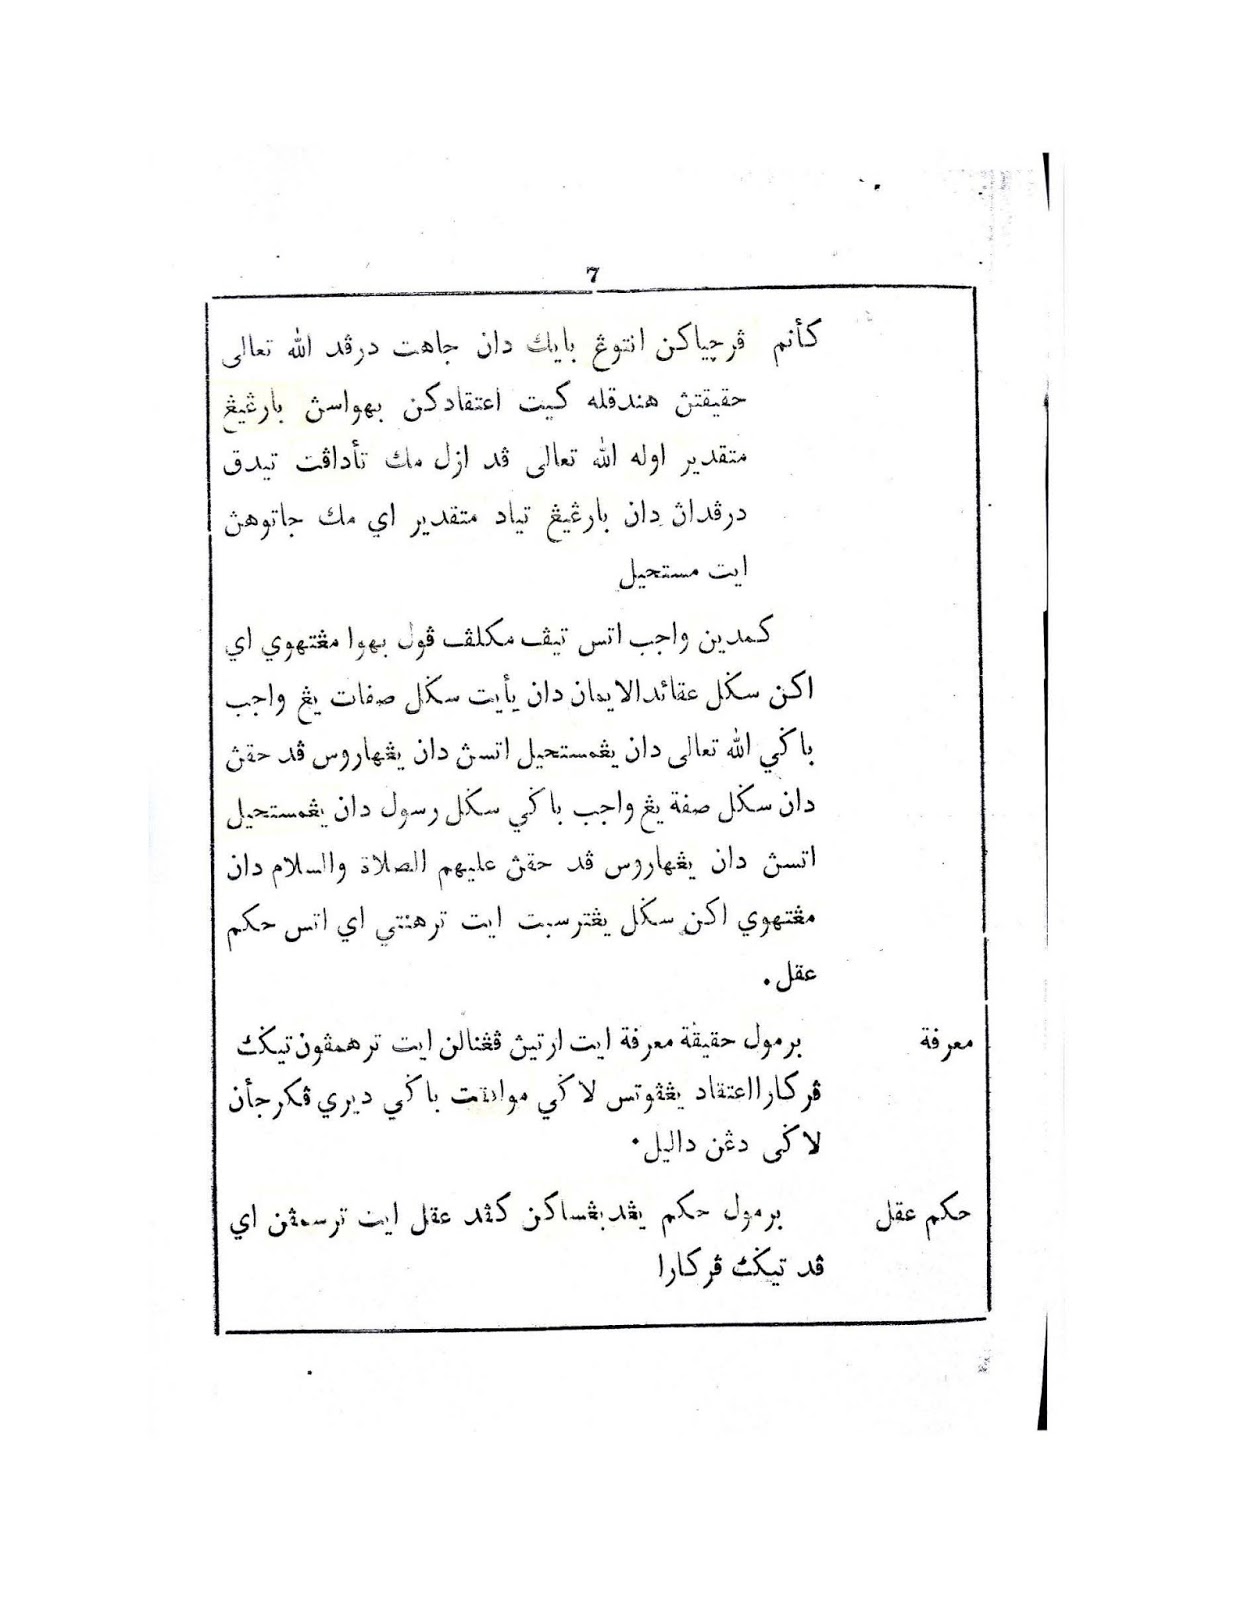 7
كأنم ڤرچياكن انتوڠ بايك دان جاهت درڤد الله تعالى
حقيقتڽ هندقله كيت اعتقادكن بهواسڽ بارڠيڠ
متقدير اوله الله تعالى ڤد ازل مك تأداڤت تيدق
درڤداڽ دان بارڠيڠ تياد متقدير اي مك جاتوهڽ
ايت مستحيل
كمدين واجب اتس تيڤ مكلف ڤول بهوا مڠتهوي اي
اكن سݢل عقائدالايمان دان يأيت سݢل صفات يڠ واجب
باݢي الله تعالى دان يڠمستحيل اتسڽ دان يڠهاروس ڤد حقڽ
دان سݢل صفة يڠ واجب باݢي سݢل رسول دان يڠمستحيل
اتسڽ دان يڠهاروس ڤد حقڽ عليهم الصلاة والسلام دان
مڠتهوي اكن سݢل يڠترسبت ايت ترهنتي اي اتس حكم
عقل.
معرفة برمول حقيقة معرفة ايت ارتيڽ ڤڠنالن ايت ترهمڤون تيݢݢ
ڤركارااعتقاد يڠڤوتس لاݢي موافقت باݢي ديري ڤكرجأن
لاݢى دڠن داليل.
حكم عقل برمول حكم يڠدبڠساكن كڤد عقل ايت ترسمڤن اي
ڤد تيݢݢ ڤركارا